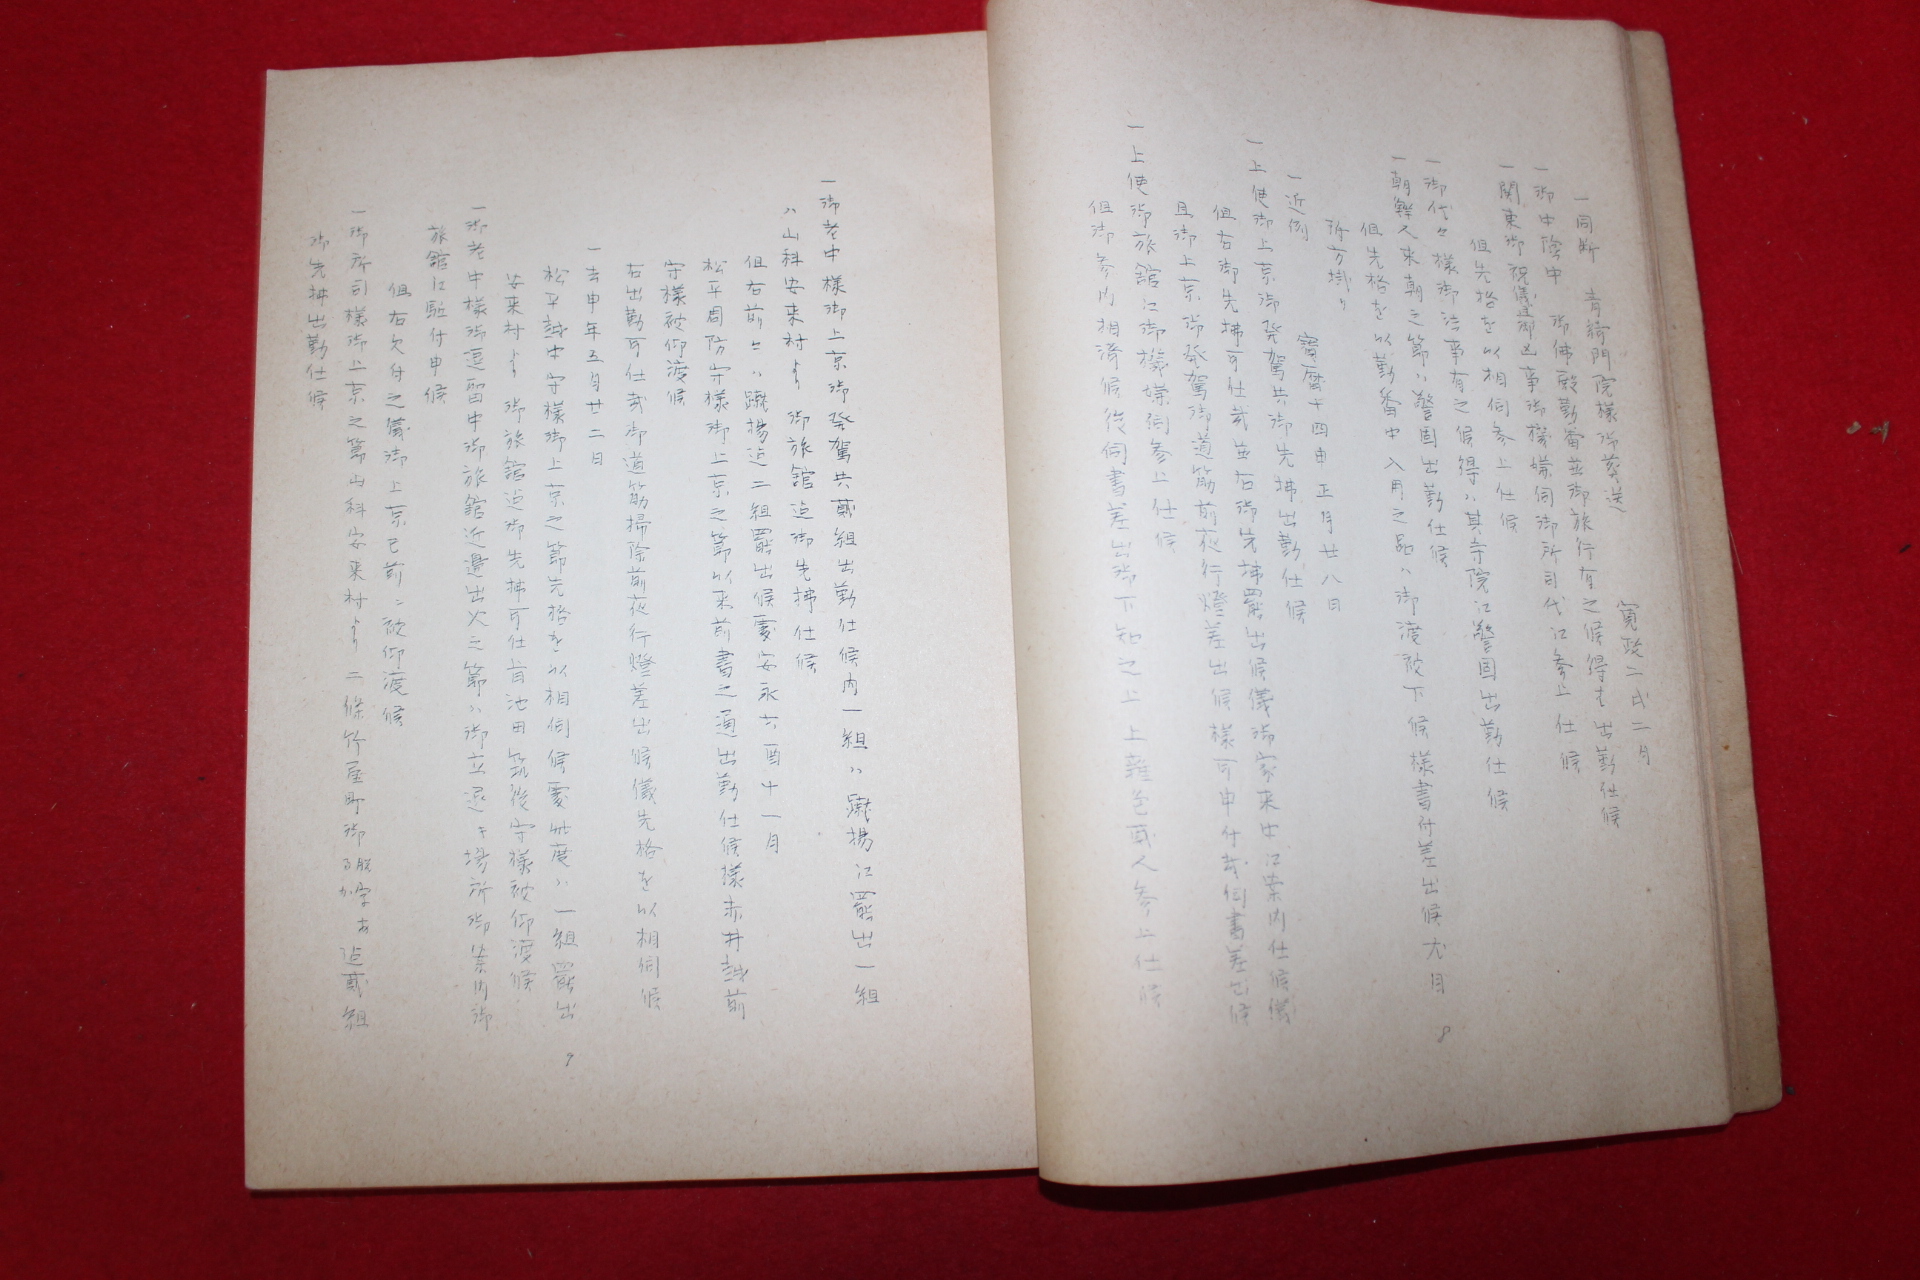 寛政二戌二月
一同断 青綺門院様御葬送
一御中陰中 御佛殿勤番並御旅行有之候得者出勤仕候
一関東御祝儀御凶事御機嫌伺御所司代江参上仕候
但先格を以相伺参上仕候
一御代々様御法事有之候得ハ其寺院江警固出勤仕候
一朝鮮人来朝之節ハ警固出勤仕候
但先格を以勤番中入用之品ハ御渡被下候様書付差出候
一近例 寳暦十四申正月廿八日
一上使御上京御発駕共御先拂出勤仕候
但右御先拂可仕哉並右御先拂罷出候儀御家来中江案内仕候儀
且御上京御発駕御道筋前夜行燈差出候様可申付哉伺書差出候
一上使御旅館江御機嫌伺参上仕候
但御参内相済候後伺書差出御下知之上 参上仕候
8
一御老中様御上京御発駕共貳組出勤仕候内一組ハ蹴揚江罷出一組
ハ山科安朱村ゟ 御旅館迄御先拂仕候
但右前々ハ蹴揚迄二組罷出候處安永六酉十一月
松平周防守様御上京之節以来前書之通出勤仕候様赤井越前
守様被仰渡候
右出勤可仕哉御道筋掃除前夜行燈差出候儀先格を以相伺候
一去申年五月廿二日
松平越中守様御上京之節先格を以相伺候處此度ハ一組罷出
安朱村ゟ 御旅館迄御先拂可仕旨池田筑後守様被仰渡候
一御老中様御逗留中御旅館近邊出火之節ハ御立退キ場所御案内御
旅館江駈付申候
但右火付之儀御上京已前ニ被仰渡候
一御所司様御上京之節山科安朱村ゟ二條竹屋町御 迄貳組
御先拂出勤仕候
9